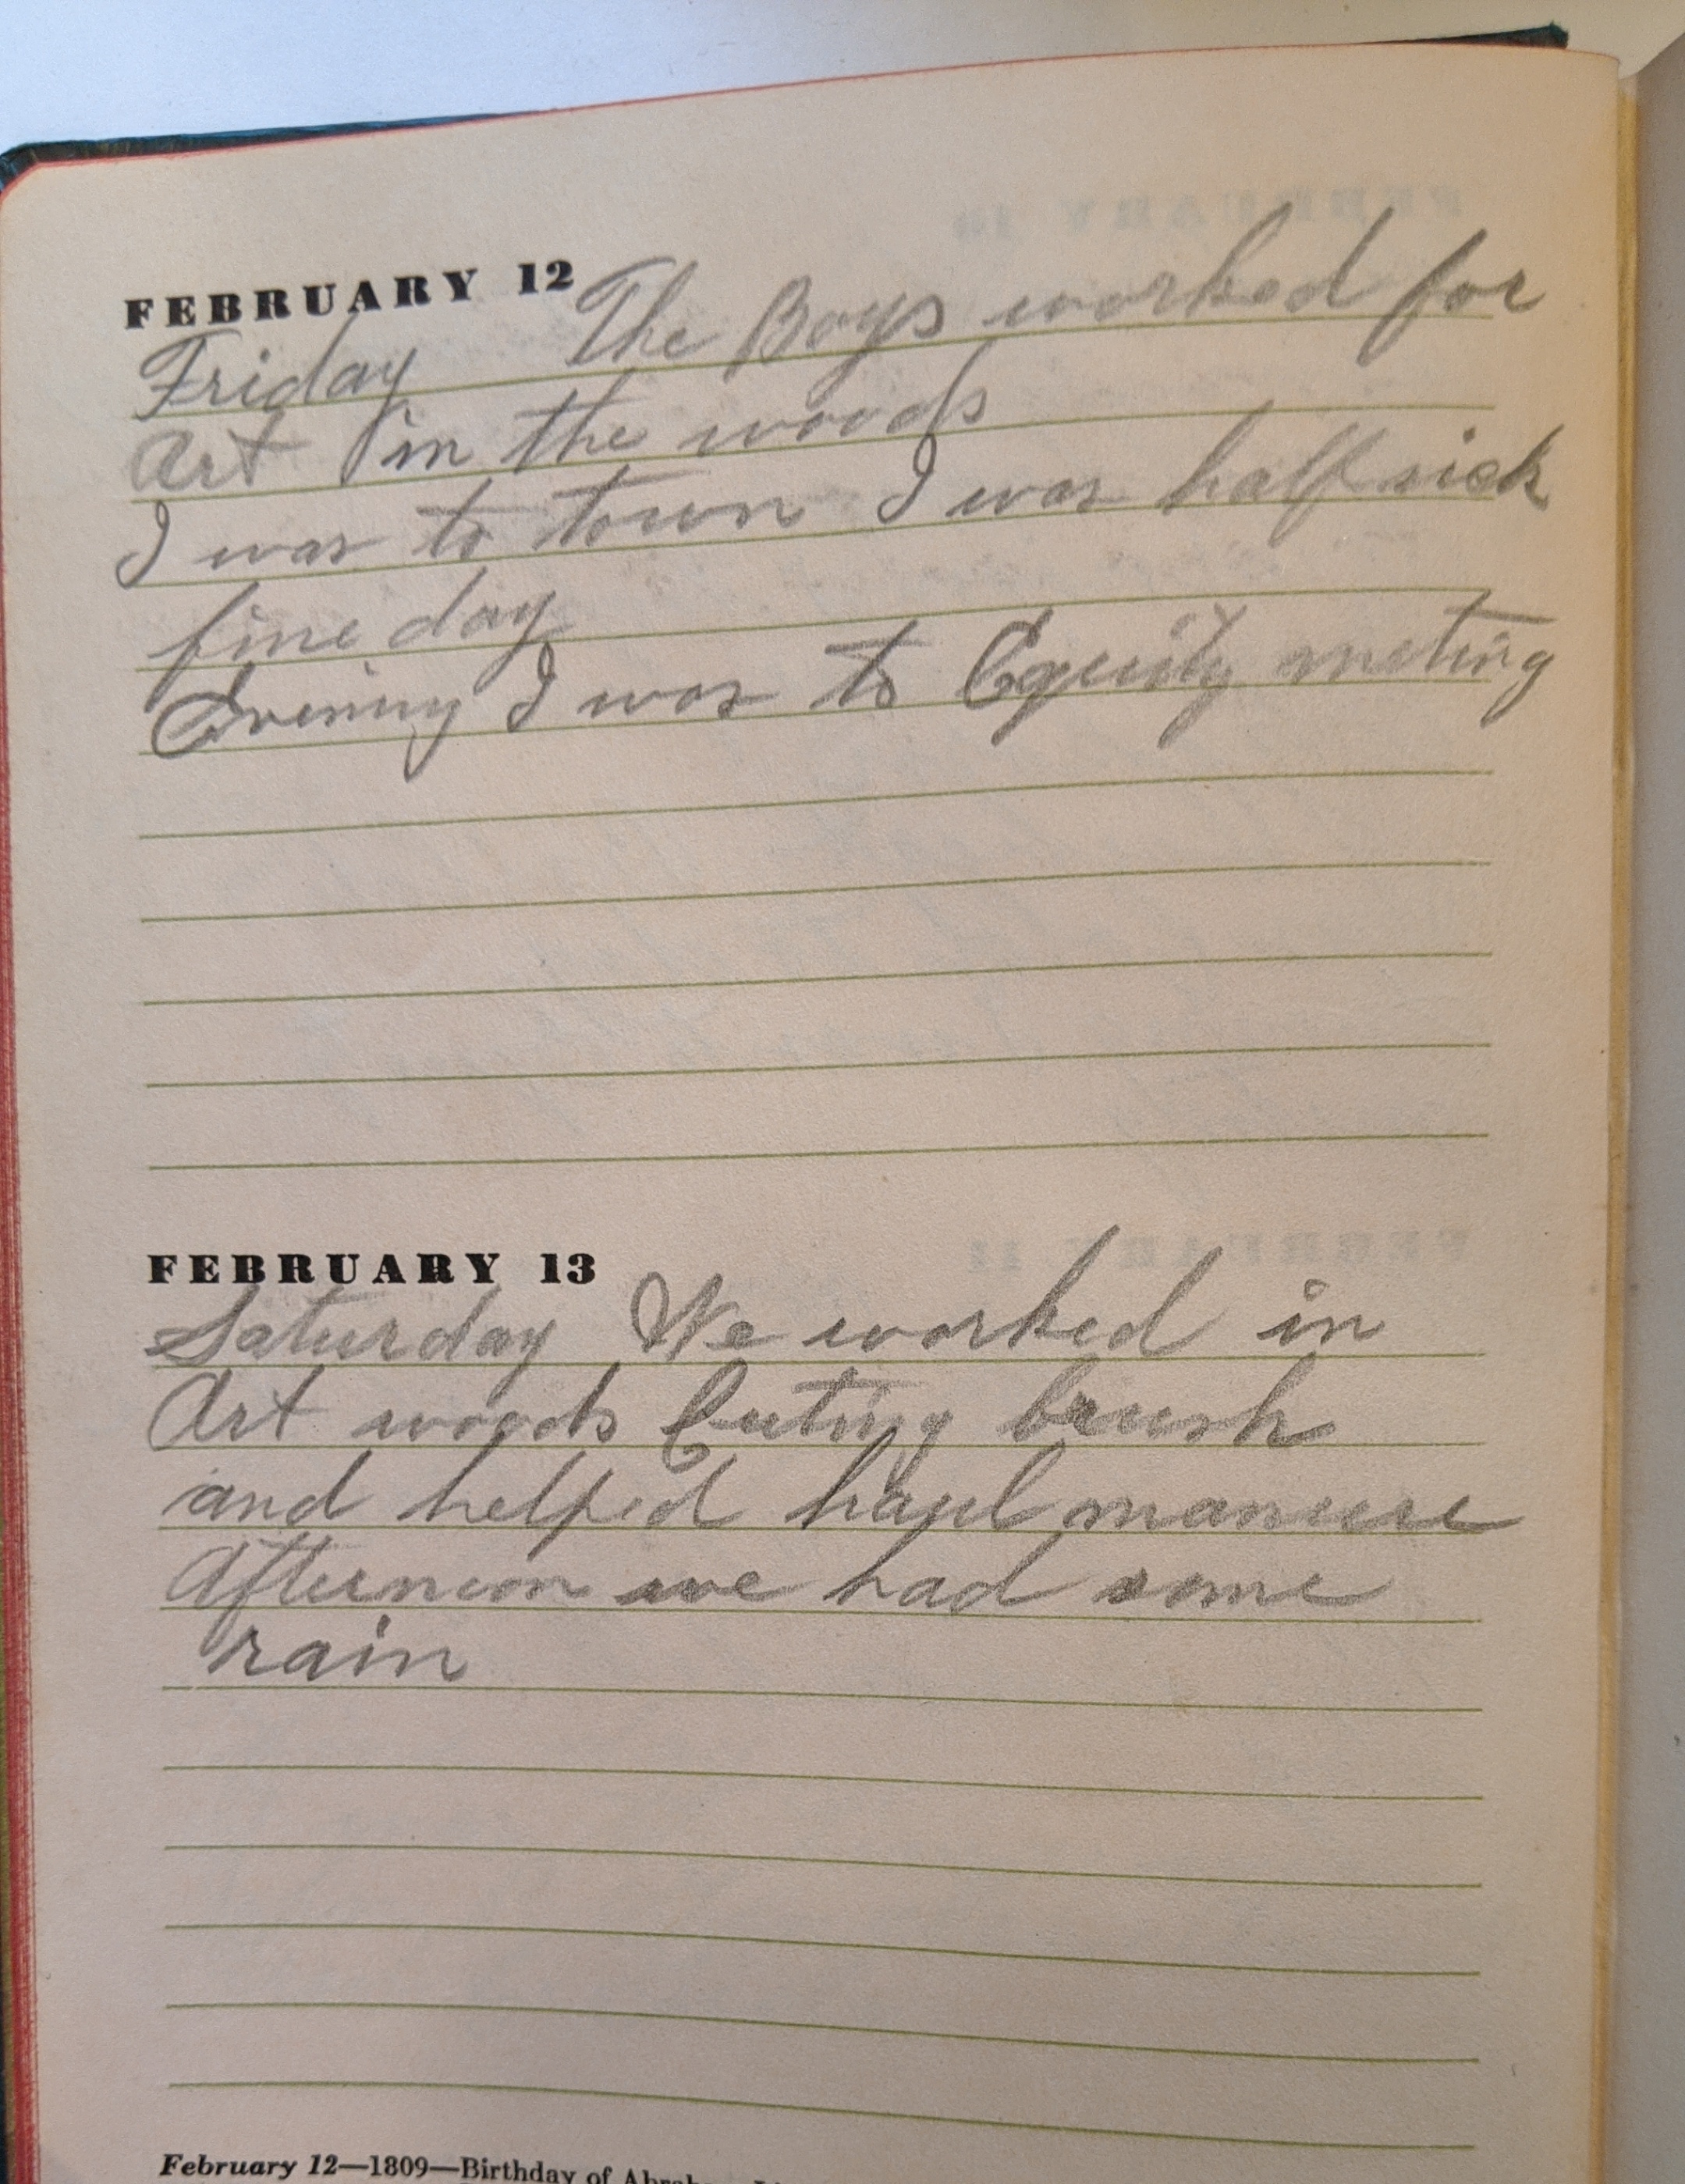 FEBRUARY 12 The Boys worked for
Friday
Art in the woods
I was to town I was half sick
fine day
Evening I was to Equity meting
FEBRUARY 13
Saturday We worked in
Art woods Cuting brush
and helped haul manure
Afternoon we had some
rain
February 12—1809—Birthday of